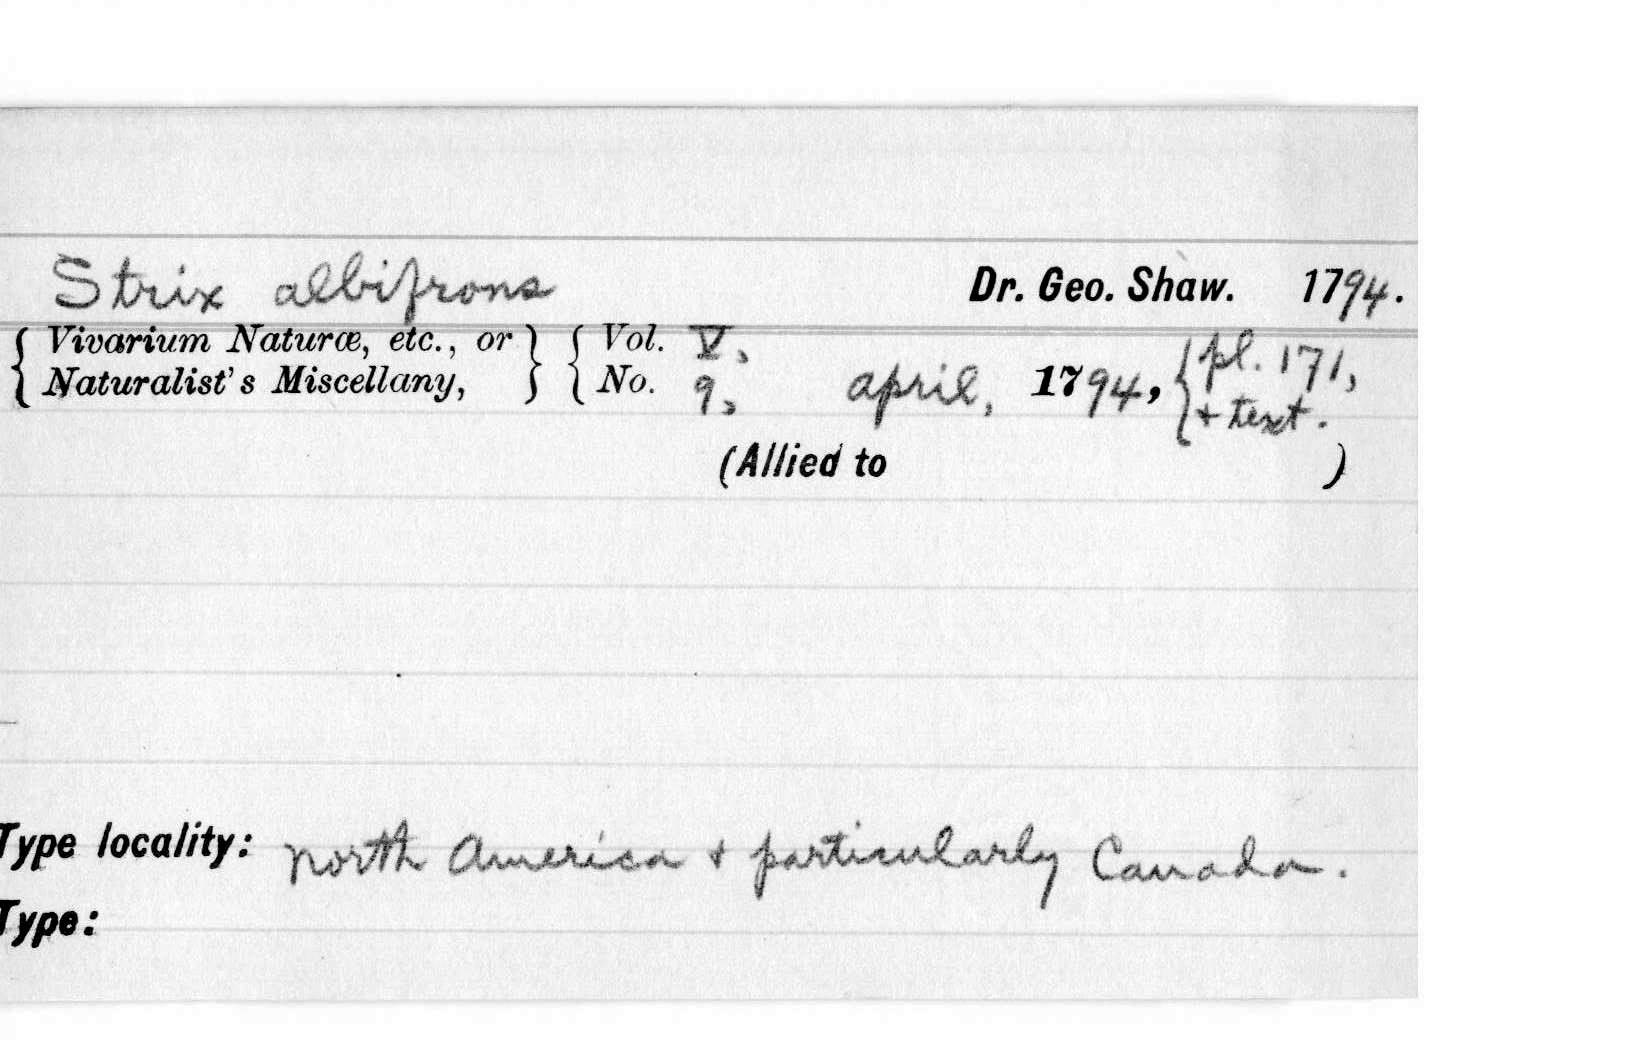 Strix albifrons Dr. Geo. Shaw. 1794.
{ Vivarium Naturæ, etc., or } { Vol. V, { pl. 171,
{ Naturalist's Miscellany, } { No. 9, april, 1794, { + text.
(Allied to )
Type locality: north America + particularly Canada.
Type: